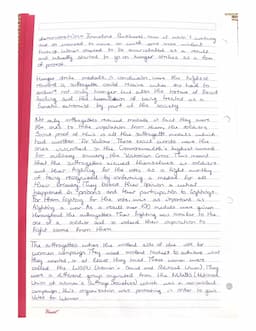 demonstrations. Emmeline Pankhurst, now it wasn't working
and so wanted to move on with and more violent
tactics. Women started to be incarcerated as a result
and usually started to go on hunger strikes as a form
of protest.
Hunger strike medals in conclusion were the highest
reward a suffragette could receive when she had to
endure not only hunger but also the torture of force
feeding and the humiliation of being treated as a
lunatic extremist by part of the society.
Not only suffragettes received medals in fact they were
the ones to take inspiration from them, the soldiers.
Some proof of this is all the suffragette medals which
had written 'For Valour'. These exact words were the
ones inscribed on the Commonwealth's highest honour
for military bravery, the Victorian Cross. This meant
that the suffragettes viewed themselves as soldiers
and their fighting for the vote as a fight worthy
of being recognised by receiving a medal for all
their bravery. They
happened in Sessions and their participation to
For them fighting for the vote was as important as
fighting a war. As a result over 100 medals were given
throughout the suffragettes. Their fighting was similar to the
one of a soldier and so valued their inspiration to
fight came from them.
The suffragettes where the violent side of the vote for
women campaign. They used violent tactics to achieve what
they wanted, or at least they tried. These women were
called the WSPU (Women's Social and Political Union). They
were a different group originated from the NUWSS (National
Union of Women's Suffrage Societies) which was a non-violent
campaign. This organisation was protesting in order to give
Votes for Women.